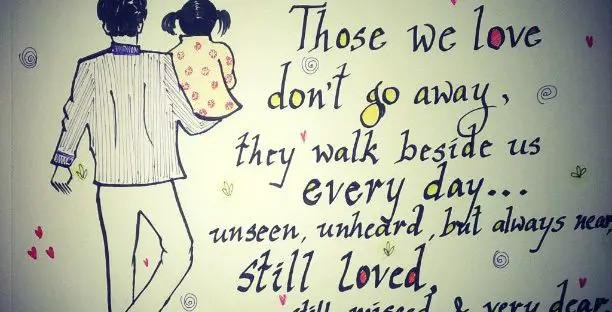 Those we love
don't go away,
they walk beside us
every day...
unseen, unheard, but always near,
still loved,
still missed & very dear